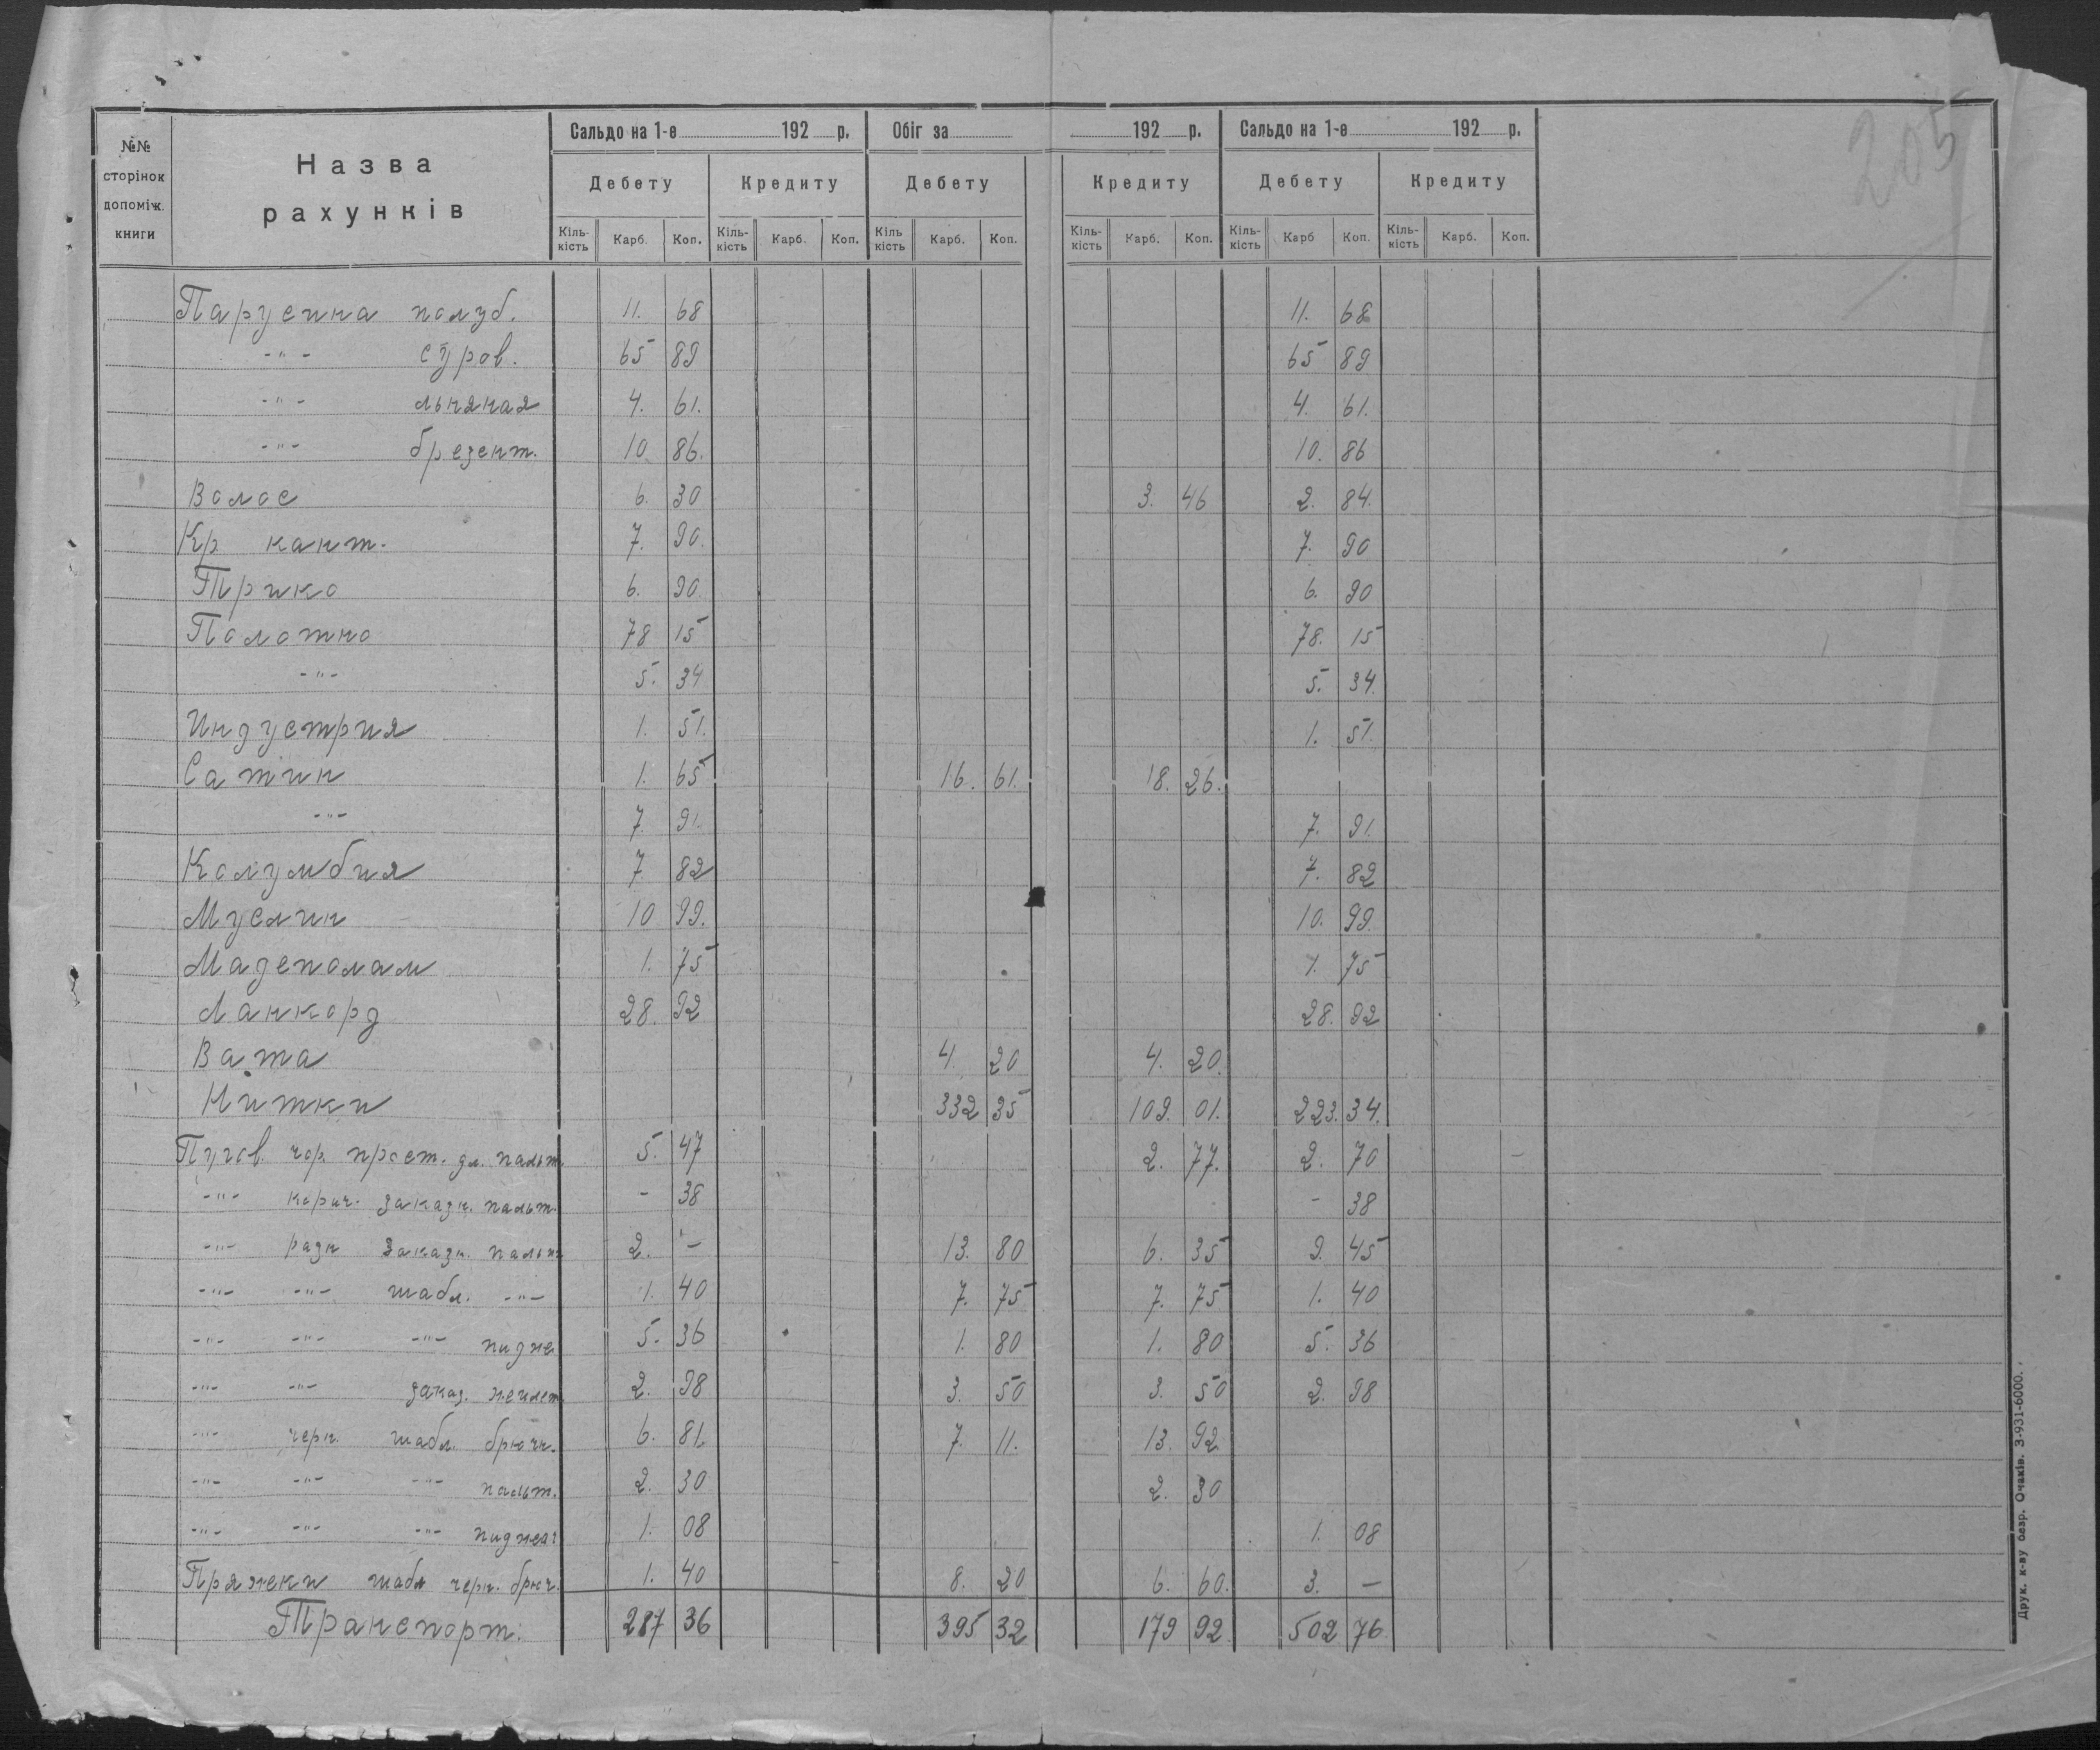 205
№№ сторінок допоміж. книги
Назва рахунків
Сальдо на 1-е 192 р. Обіг за 192 р. Сальдо на 1-е 192 р.
Дебету Кредиту Дебету Кредиту Дебету Кредиту
Кіль-кість Карб. Коп. Кіль-кість Карб. Коп. Кіль кість Карб. Коп. Кіль-кість Карб. Коп. Кіль-кість Карб Коп. Кіль-кість Карб. Коп.
Парусина полуб. 11. 68 11. 68
-"- суров. 65 89 65 89
-"- льняная 4. 61. 4. 61.
-"- брезент. 10 86. 10. 86
Волос 6. 30 3. 46 2. 84.
Кр кант. 7. 90. 7. 90
Трико 6. 90. 6. 90
Полотно 78 15 78. 15
-"- 5. 34 5. 34.
Индустрия 1. 51. 1. 51.
Сатин 1. 65 16. 61. 18. 26.
-"- 7. 91. 7. 91.
Колумбия 7. 82 7. 82
Муслин 10 99. 10. 99.
Мадеполам 1. 75 1. 75
Ланкорд 28. 92 28. 92
Вата 4. 20 4. 20.
Нитки 332 35 109. 01. 223. 34.
Пугов. чор. прост. дл. пальт. 5. 47 2. 77. 2. 70
-"- корич. заказн. пальт. - 38 - 38
-"- разн заказн. пальт. 2. - 13. 80 6. 35 9. 45
-"- -"- шабл. -"- 1. 40 7. 75 7. 75 1. 40
-"- -"- -"- пидже 5. 36 1. 80 1. 80 5. 36
-"- -"- заказ. жилет. 2. 98 3. 50 3. 50 2. 98
-"- черн. шабл. брючн. 6. 81. 7. 11. 13. 92
-"- -"- -"- пальт. 2. 30 2. 30
-"- -"- -"- пиджеч 1. 08 1. 08
Пряжеки шабл черн. брюч. 1. 40 8. 20 6. 60. 3. —
Транспорт. 287 36 395 32 179 92. 502 76
Друк. к-ву осзр. Очаків. З-931-6000.